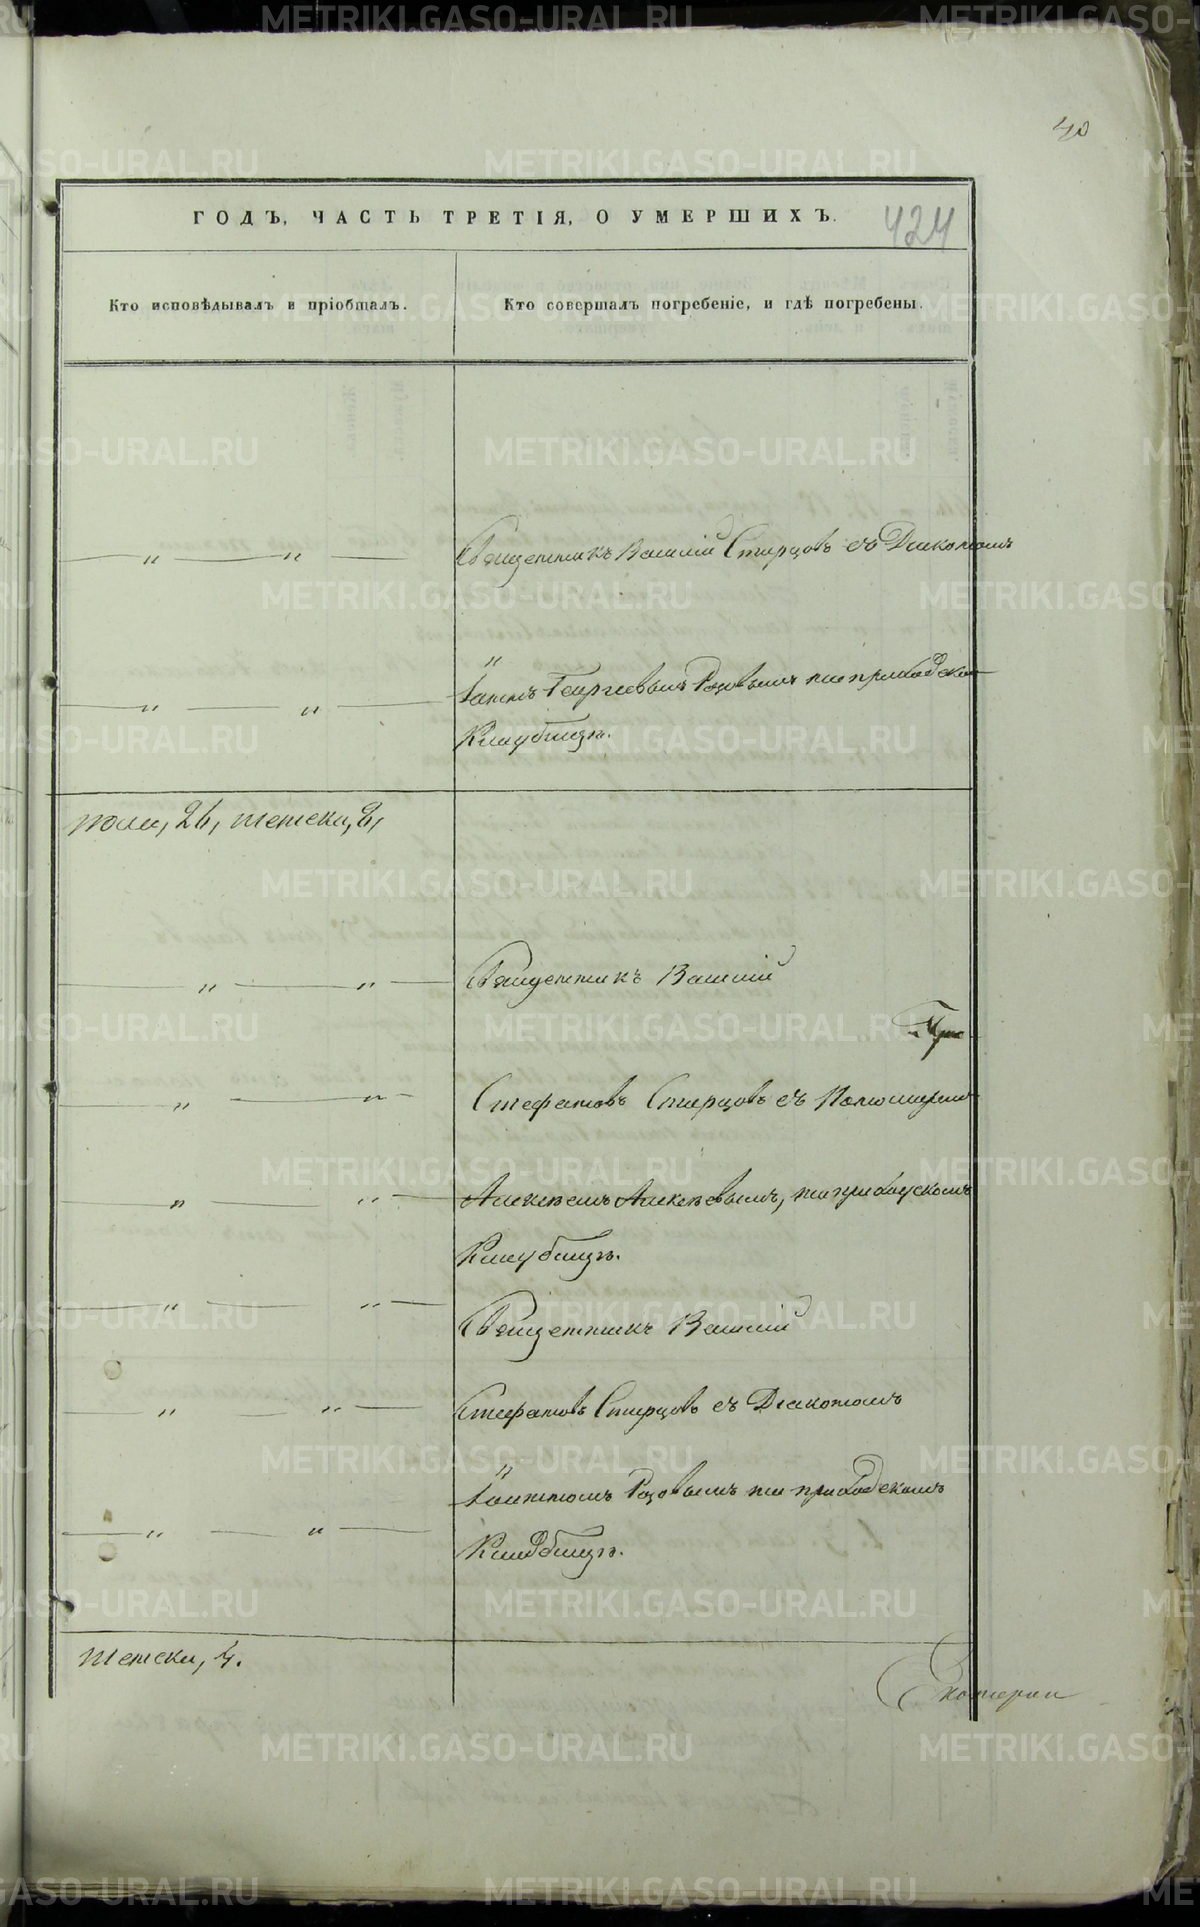 40
ГОДЪ, ЧАСТЬ ТРЕТІЯ, О УМЕРШИХЪ.
424
Кто исповѣдывалъ и пріобщалъ.
Кто совершалъ погребеніе, и гдѣ погребены.
— „ — „ —
Священникъ Василій Старцовъ съ Діакономъ
— „ — „ —
Георгіевымъ на приходско
Кладбищѣ.
2,
— „ — „ —
Священникъ Василій
— „ — „ —
Стефановъ Старцовъ съ Пономарем
— „ — „ —
Алексѣемъ Алексѣевымъ, на приходскомъ
Кладбищѣ.
— „ — „ —
Священникъ Василій
— „ — „ —
Стефановъ Старцовъ съ Діакономъ
на приходскомъ
— „ — „ —
Кладбищѣ.
женска, 4.
Екатерин
METRIKI.GASO-URAL.RU